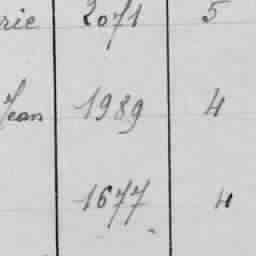 rie 2071 5
Jean 1989 4
1677 4